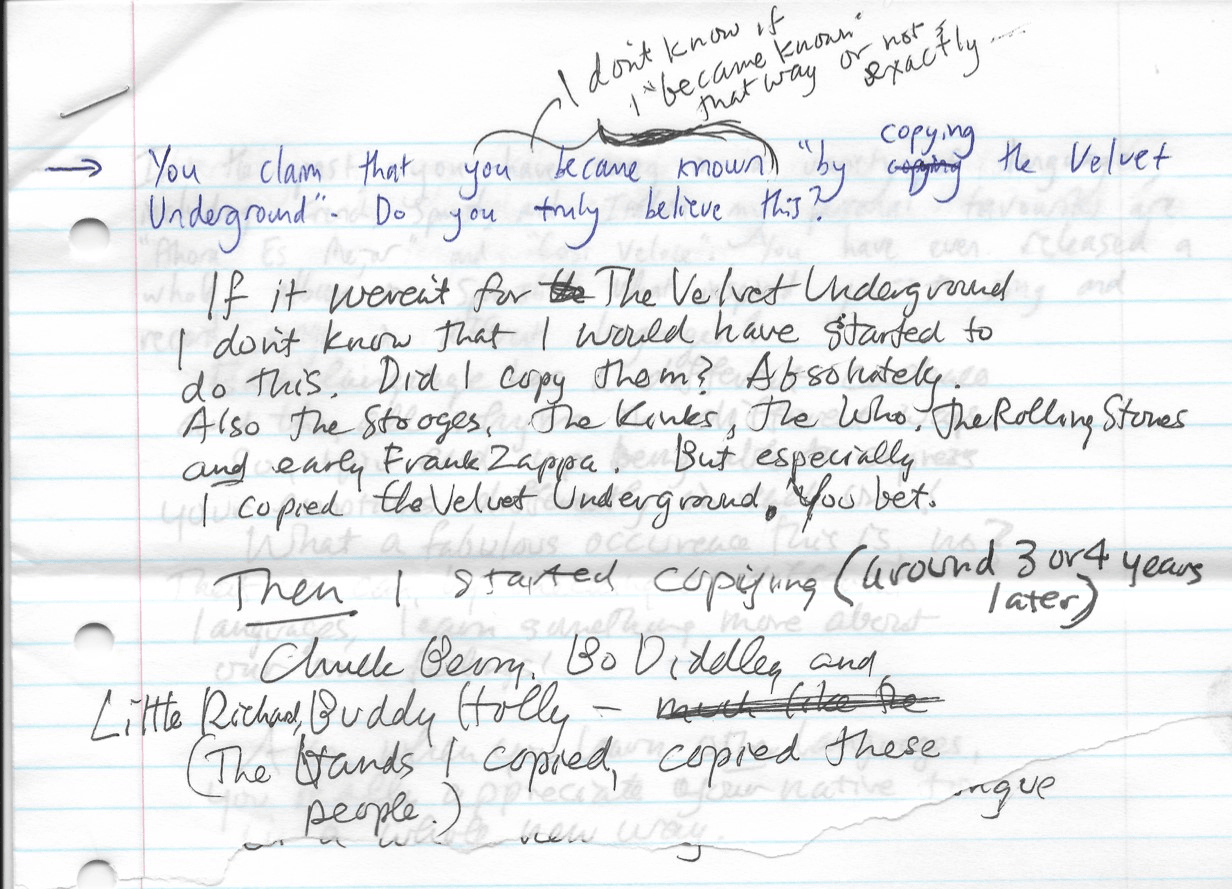 I don't know if
I "became known"
that way or not
exactly —
→ You claim that you became known "by copying the Velvet
Underground". Do you truly believe this?
If it weren't for The Velvet Underground
I don't know that I would have started to
do this. Did I copy them? Absolutely.
Also the Stooges, The Kinks, The Who, The Rolling Stones
and early Frank Zappa. But especially
I copied the Velvet Underground. You bet.
Then I started copying (around 3 or 4 years
later)
Chuck Berry, Bo Diddley and
Little Richard, Buddy Holly – much like the
(The bands I copied, copied these
people.)